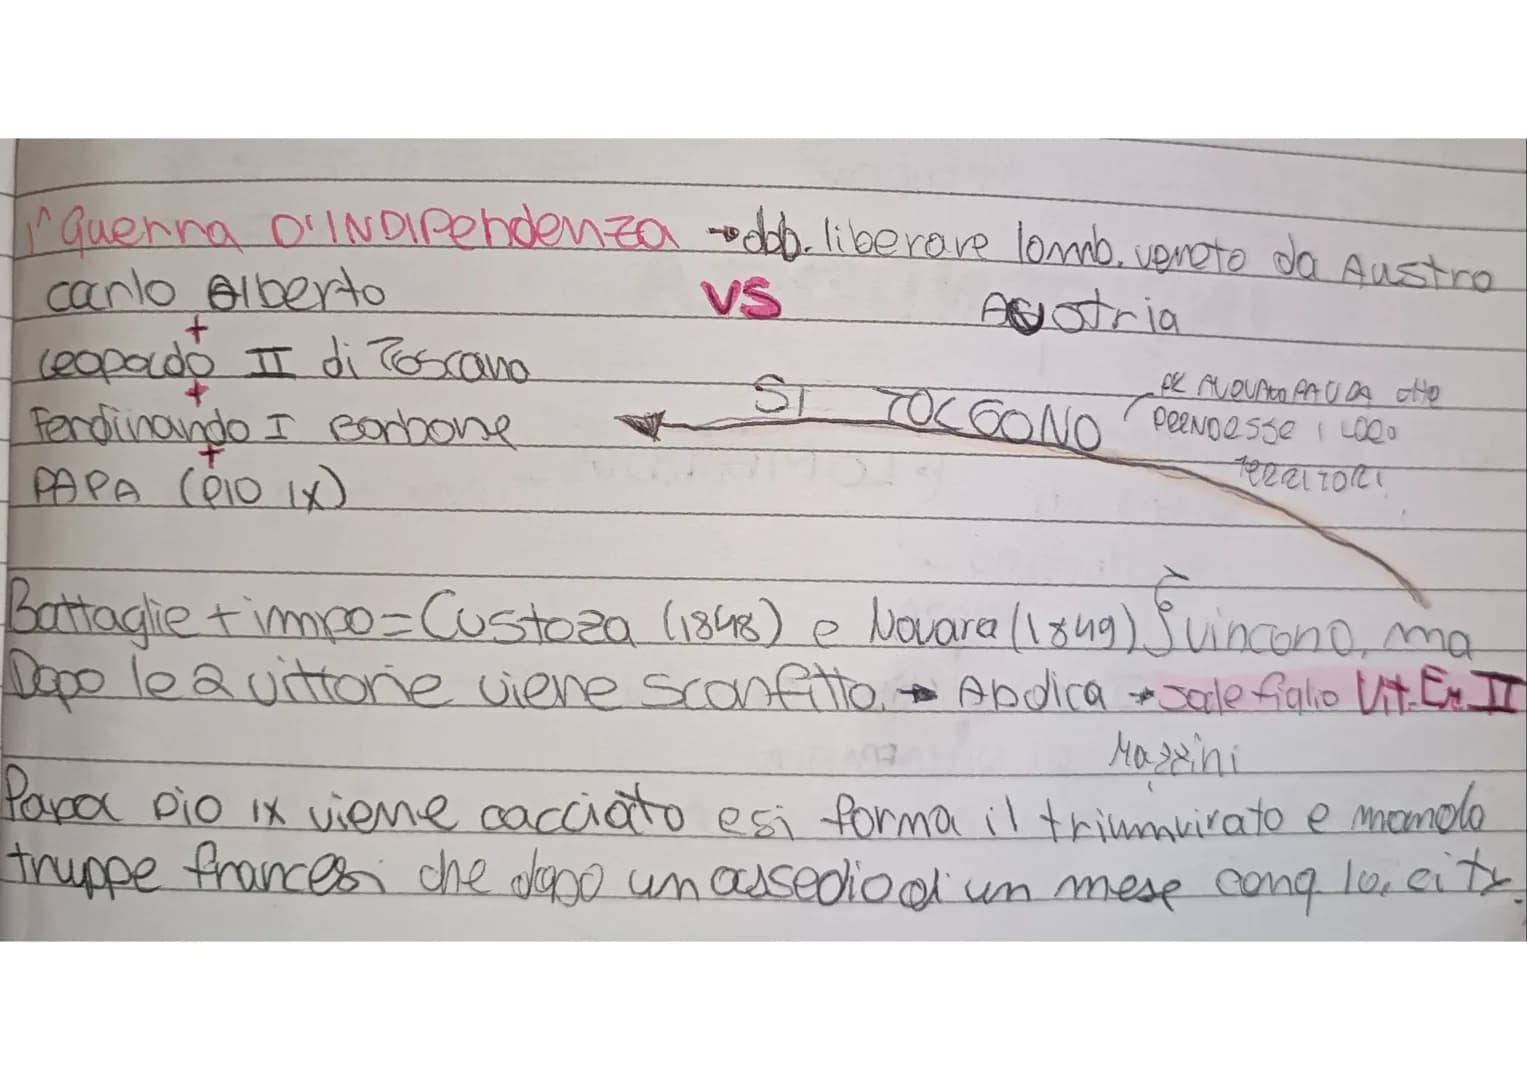 1^ Guerra D'INDIPendenza → obb. liberare lomb. veneto da Austro
carlo Alberto VS Austria
+
Leopoldo II di Toscana
+
Ferdinando I Borbone SI TOLGONO PK AVEVANO PAURA CHE
PRENDESSE I LORO
+
PAPA (PIO IX) TERRITORI
Battaglie + impo = Custoza (1848) e Novara (1849) vincono, ma
Dopo le 2 vittorie viene sconfitto. → Abdica → sale figlio Vit. Em. II
Mazzini
Papa Pio IX viene cacciato e si forma il triumvirato e manda
truppe francesi che dopo un assedio di un mese conq la citt